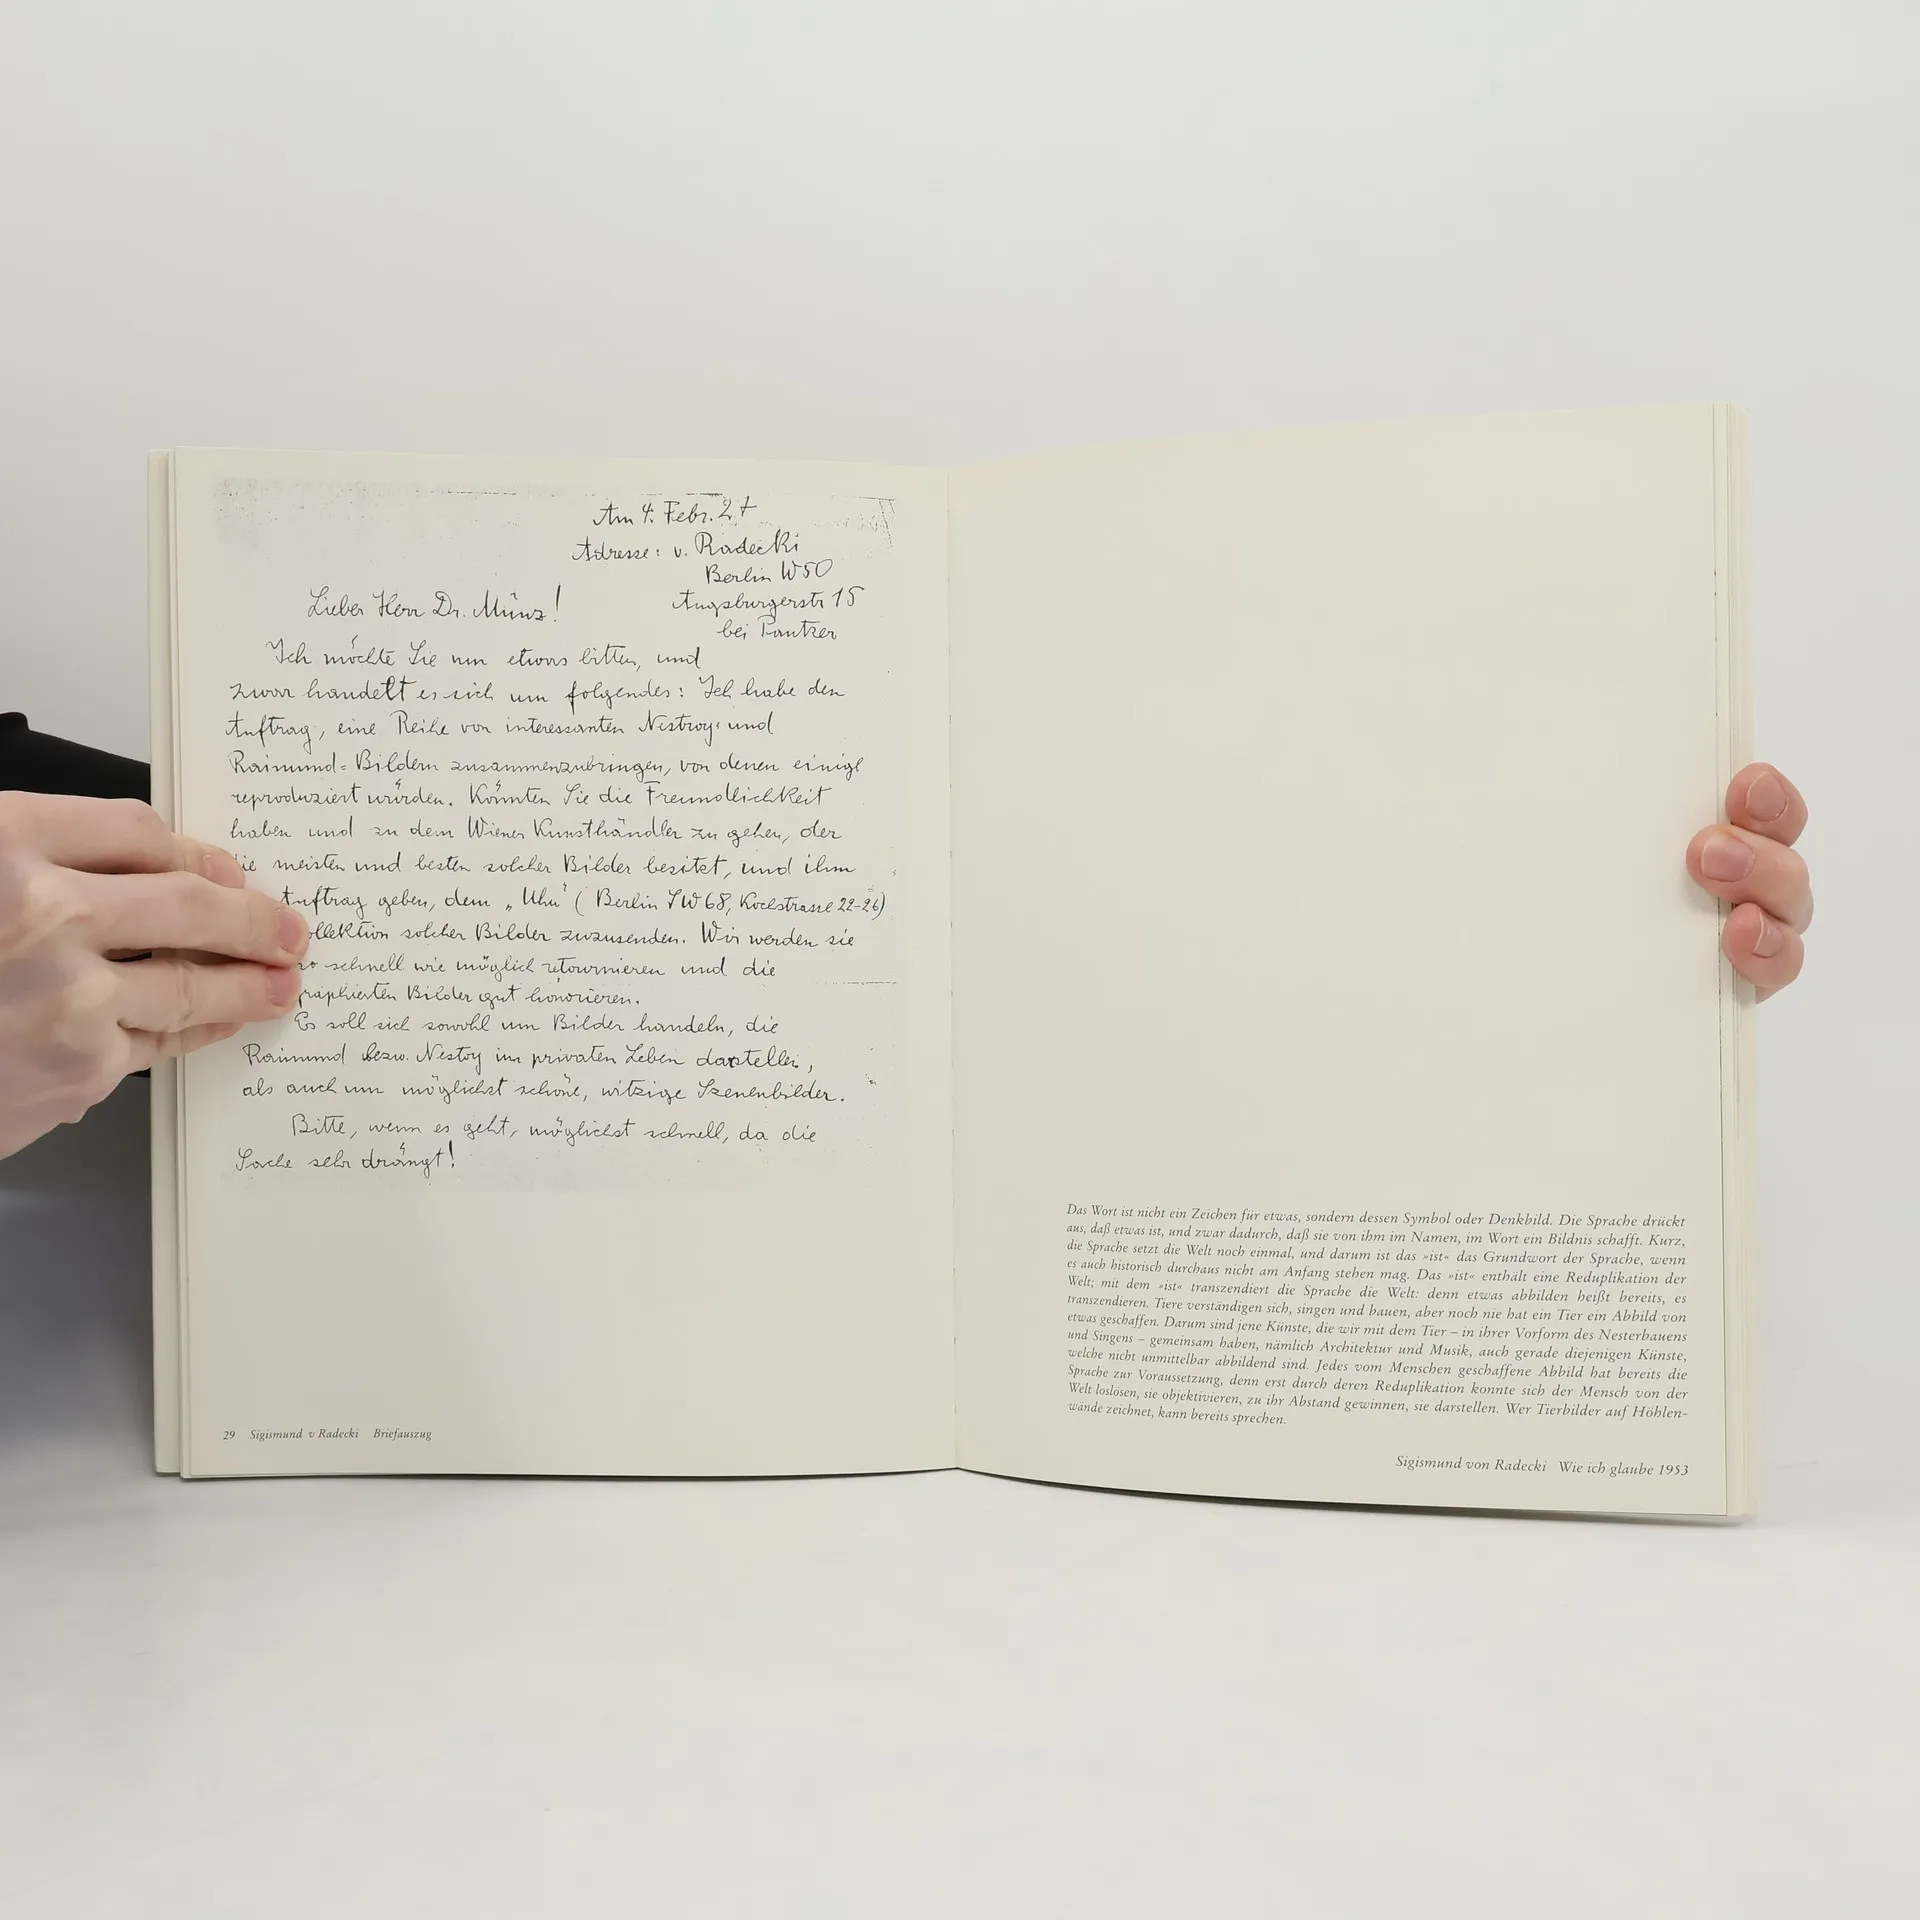 Am 4. Febr. 27
Adresse: v. Radecki
Berlin W50
Augsburgerstr 15
bei Pantzer
Lieber Herr Dr. Münz!
Ich möchte Sie um etwas bitten, und
zwar handelt es sich um folgendes: Ich habe den
Auftrag, eine Reihe von interessanten Nestroy- und
Raimund-Bildern zusammenzubringen, von denen einige
reproduziert würden. Könnten Sie die Freundlichkeit
haben und zu dem Wiener Kunsthändler zu gehen, der
die meisten und besten solcher Bilder besitzt, und ihm
Auftrag geben, dem „Uhu" (Berlin SW68, Kochstrasse 22-26)
ollektion solcher Bilder zuzusenden. Wir werden sie
so schnell wie möglich retournieren und die
graphierten Bilder gut honorieren.
Es soll sich sowohl um Bilder handeln, die
Raimund bezw. Nestroy im privaten Leben darstellen,
als auch um möglichst schöne, witzige Szenenbilder.
Bitte, wenn es geht, möglichst schnell, da die
Sache sehr drängt!
29 Sigismund v Radecki Briefauszug
Das Wort ist nicht ein Zeichen für etwas, sondern dessen Symbol oder Denkbild. Die Sprache drückt
aus, daß etwas ist, und zwar dadurch, daß sie von ihm im Namen, im Wort ein Bildnis schafft. Kurz,
die Sprache setzt die Welt noch einmal, und darum ist das »ist« das Grundwort der Sprache, wenn
es auch historisch durchaus nicht am Anfang stehen mag. Das »ist« enthält eine Reduplikation der
Welt; mit dem »ist« transzendiert die Sprache die Welt: denn etwas abbilden heißt bereits, es
transzendieren. Tiere verständigen sich, singen und bauen, aber noch nie hat ein Tier ein Abbild von
etwas geschaffen. Darum sind jene Künste, die wir mit dem Tier – in ihrer Vorform des Nesterbauens
und Singens – gemeinsam haben, nämlich Architektur und Musik, auch gerade diejenigen Künste,
welche nicht unmittelbar abbildend sind. Jedes vom Menschen geschaffene Abbild hat bereits die
Sprache zur Voraussetzung, denn erst durch deren Reduplikation konnte sich der Mensch von der
Welt loslösen, sie objektivieren, zu ihr Abstand gewinnen, sie darstellen. Wer Tierbilder auf Höhlen-
wände zeichnet, kann bereits sprechen.
Sigismund von Radecki Wie ich glaube 1953